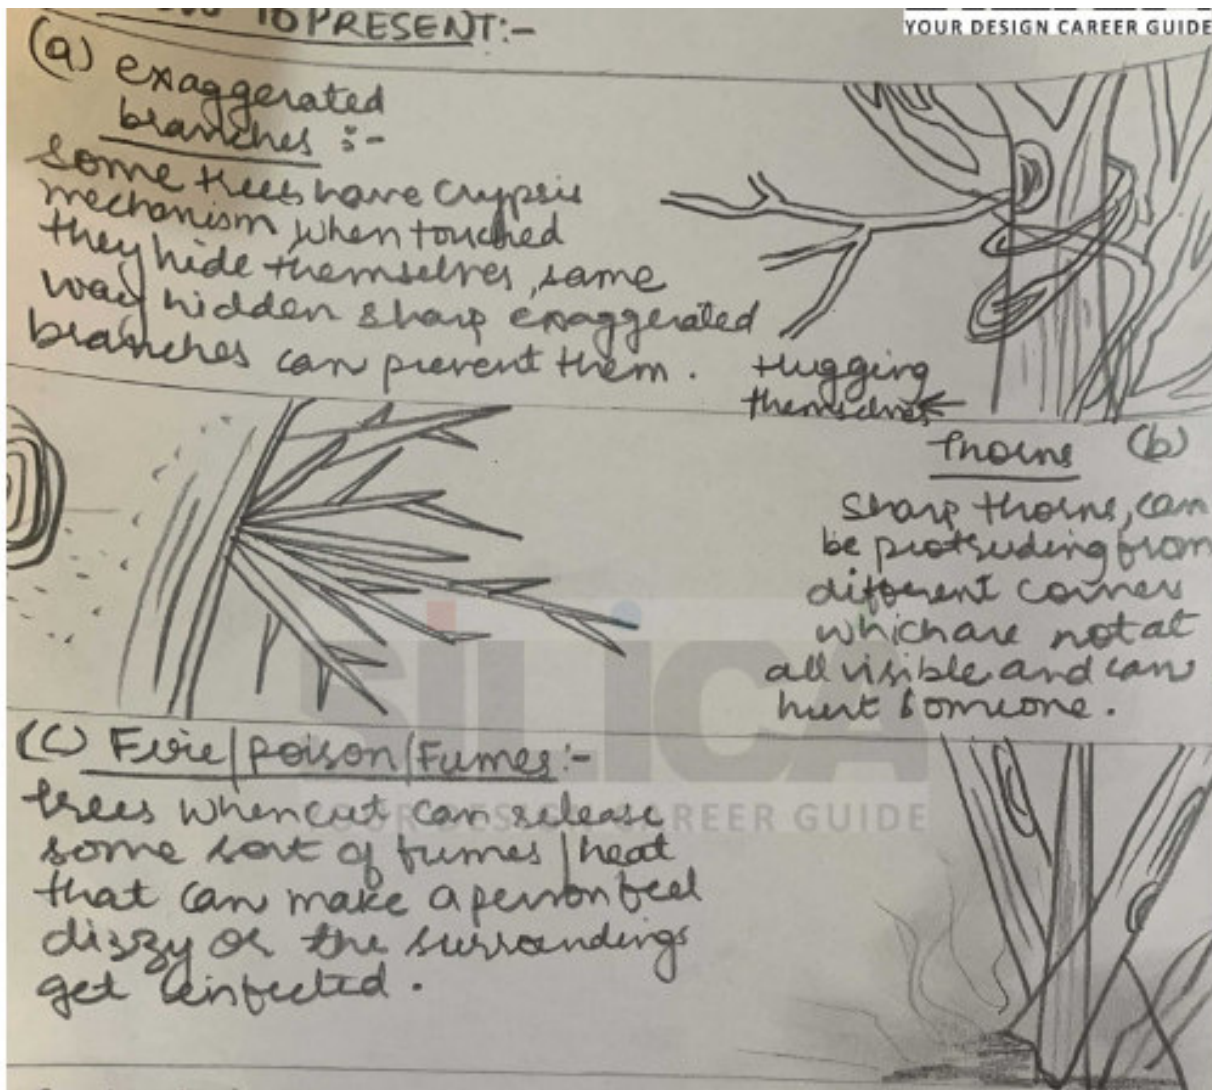 TO PRESENT:-
YOUR DESIGN CAREER GUIDE
(a) exaggerated
branches :-
Some trees have crypsis
mechanism, when touched
they hide themselves, same
way hidden sharp exaggerated
branches can prevent them.
Hugging
themselves
Thorns (b)
Sharp thorns, can
be protruding from
different corners
which are not at
all visible and can
hurt someone.
(C) Fire/poison/Fumes:-
trees when cut can release
some sort of fumes/heat
that can make a person feel
dizzy or the surroundings
get infected.
SILICA
YOUR DESIGN CAREER GUIDE